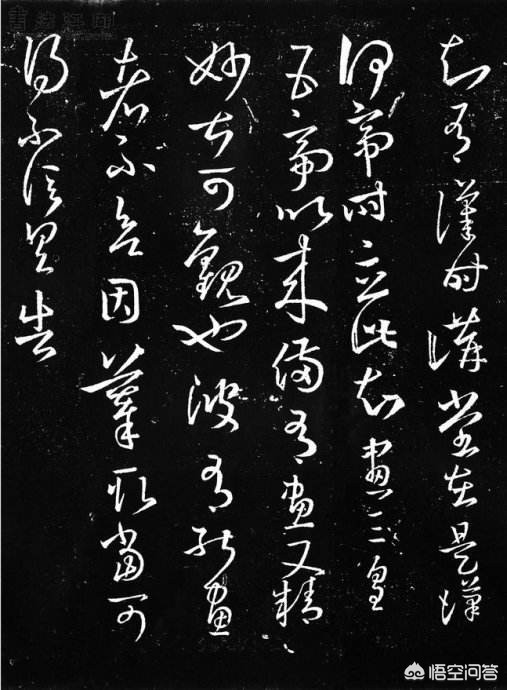 知有漢時講堂在是漢
何帝時立此知畫三皇
五帝以來備有畫又精
妙甚可觀也彼有能畫
者不欲因摹取當可
得不信具告
悟空问答